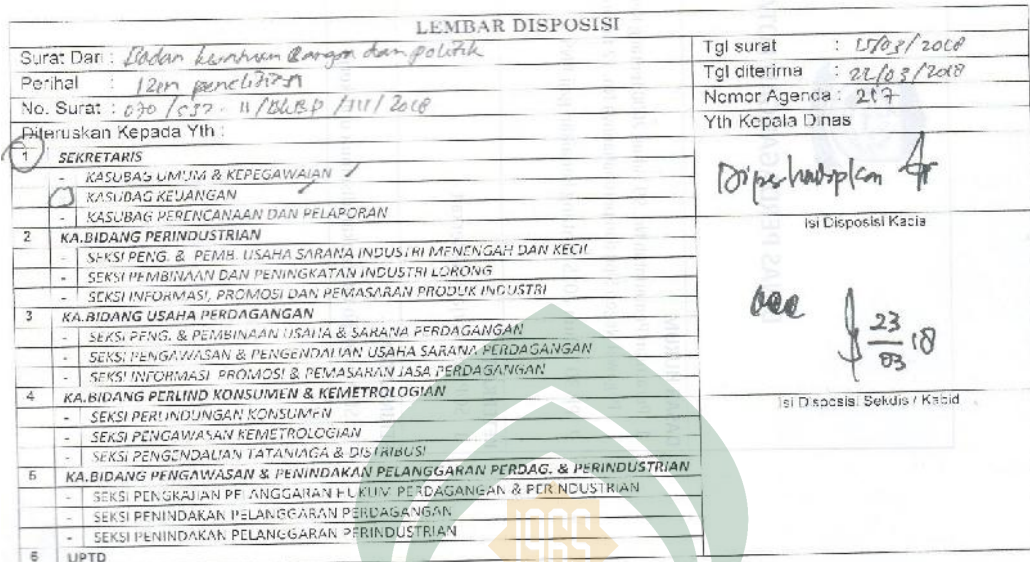 LEMBAR DISPOSISI
Surat Dari : Badan kesatuan Bangsa dan politik
Perihal : Izin penelitian
No. Surat : 070 / - II/BKBP /III/ 2018
Diteruskan Kepada Yth :
Tgl surat : 15/03/2018
Tgl diterima : 22/03/2018
Nomor Agenda : 217
Yth Kepala Dinas
1 SEKRETARIS
- KASUBAG UMUM & KEPEGAWAIAN
KASUBAG KEUANGAN
- KASUBAG PERENCANAAN DAN PELAPORAN
2 KA.BIDANG PERINDUSTRIAN
- SEKSI PENG. & PEMB. USAHA SARANA INDUSTRI MENENGAH DAN KECIL
- SEKSI PEMBINAAN DAN PENINGKATAN INDUSTRI LORONG
- SEKSI INFORMASI, PROMOSI DAN PEMASARAN PRODUK INDUSTRI
3 KA.BIDANG USAHA PERDAGANGAN
- SEKSI PENG. & PEMBINAAN USAHA & SARANA PERDAGANGAN
- SEKSI PENGAWASAN & PENGENDALIAN USAHA SARANA PERDAGANGAN
- SEKSI INFORMASI PROMOSI & PEMASARAN JASA PERDAGANGAN
4 KA.BIDANG PERLIND KONSUMEN & KEMETROLOGIAN
- SEKSI PERLINDUNGAN KONSUMEN
- SEKSI PENGAWASAN KEMETROLOGIAN
- SEKSI PENGENDALIAN TATANIAGA & DISTRIBUSI
5 KA.BIDANG PENGAWASAN & PENINDAKAN PELANGGARAN PERDAG. & PERINDUSTRIAN
- SEKSI PENGKAJIAN PELANGGARAN HUKUM PERDAGANGAN & PERINDUSTRIAN
- SEKSI PENINDAKAN PELANGGARAN PERDAGANGAN
- SEKSI PENINDAKAN PELANGGARAN PERINDUSTRIAN
6 UPTD
Isi Disposisi Kadis
23
03 18
Isi Disposisi Sekdis / Kabid
1965